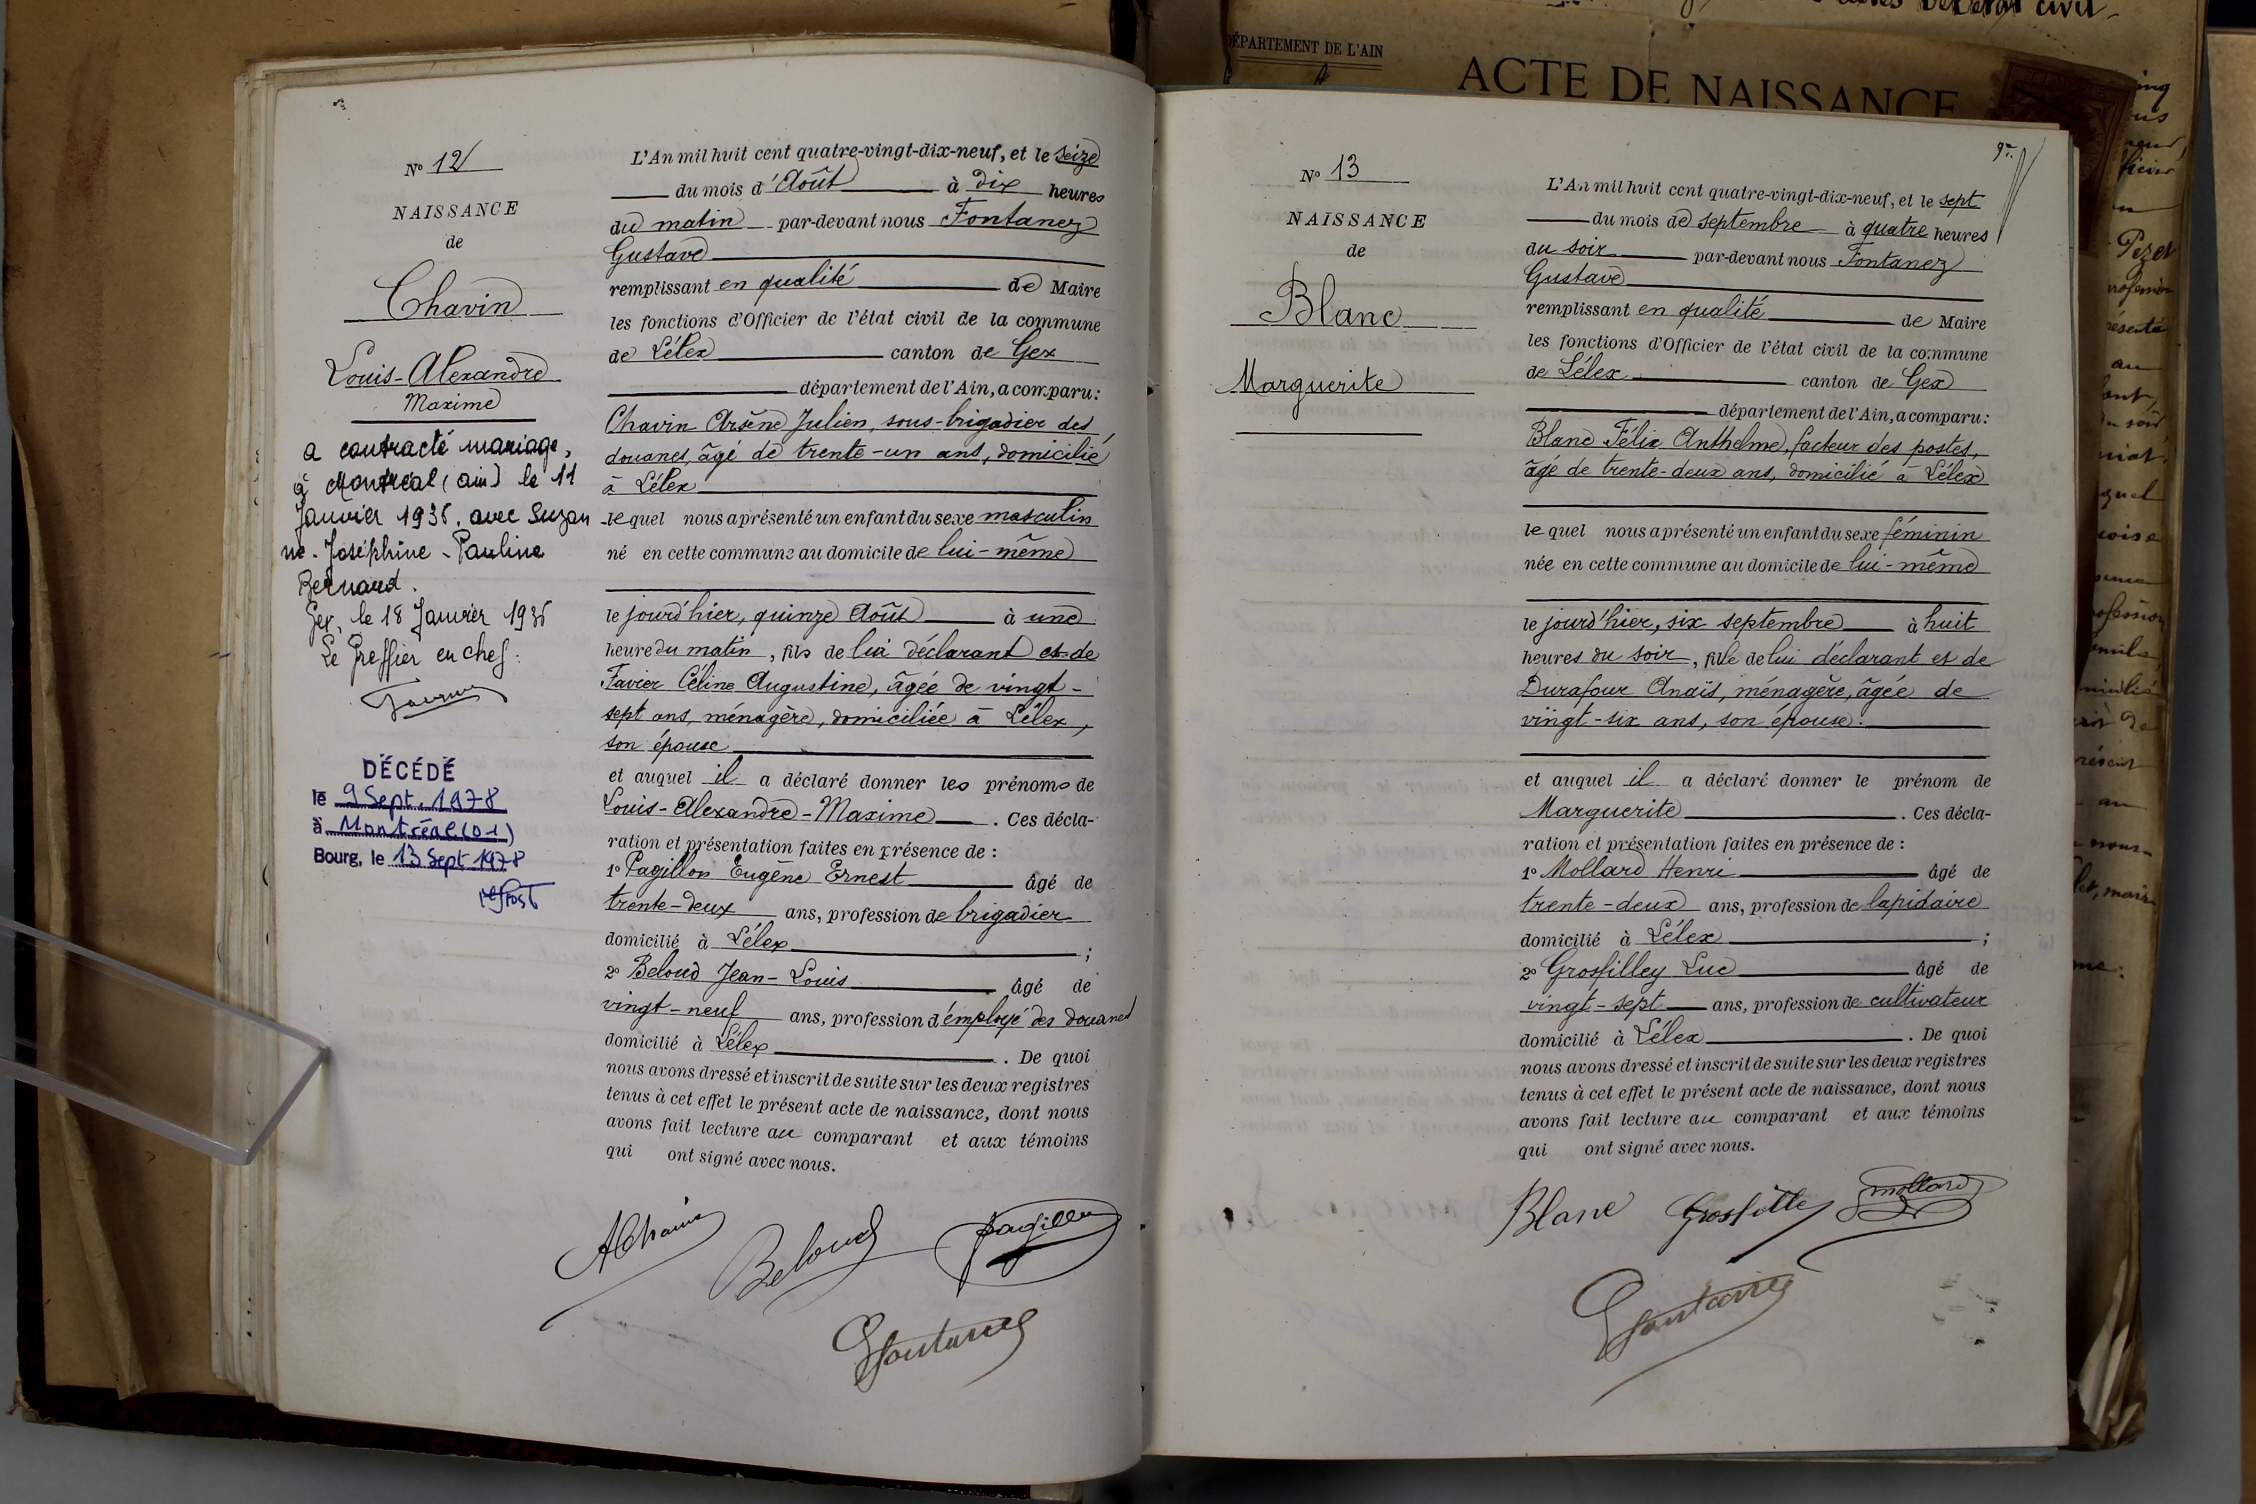 N° 12
NAISSANCE
de
Chavin
Louis-Alexandre
Maxime
a contracté mariage,
à Montréal (ain) le 11
Janvier 1936, avec Suzan
ne-Joséphine-Pauline
Bernard.
Gex, le 18 Janvier 1936
Le Greffier en chef:
DÉCÉDÉ
le 9 Sept. 1978
à Montréal (01)
Bourg, le 13 Sept 1978
L'An mil huit cent quatre-vingt-dix-neuf, et le seize
du mois d'Août à dix heures
du matin par-devant nous Fontanez
Gustave
remplissant en qualité de Maire
les fonctions d'Officier de l'état civil de la commune
de Lélex canton de Gex
département de l'Ain, a comparu:
Chavin Arsène Julien, sous-brigadier des
douanes, âgé de trente-un ans, domicilié
à Lélex
lequel nous a présenté un enfant du sexe masculin
né en cette commune au domicile de lui-même
le jourd'hier, quinze Août à une
heure du matin, fils de lui déclarant et de
Favier Céline Augustine, âgée de vingt-
sept ans, ménagère, domiciliée à Lélex,
son épouse
et auquel il a déclaré donner les prénoms de
Louis-Alexandre-Maxime. Ces décla-
ration et présentation faites en présence de:
1° Pagillon Eugène Ernest âgé de
trente-deux ans, profession de brigadier
domicilié à Lélex;
2° Beloud Jean-Louis âgé de
vingt-neuf ans, profession d'employé des douanes
domicilié à Lélex. De quoi
nous avons dressé et inscrit de suite sur les deux registres
tenus à cet effet le présent acte de naissance, dont nous
avons fait lecture au comparant et aux témoins
qui ont signé avec nous.
AChavin Beloud Pagillon
GFontanez
DÉPARTEMENT DE L'AIN
ACTE DE NAISSANCE
N° 13
NAISSANCE
de
Blanc
Marguerite
L'An mil huit cent quatre-vingt-dix-neuf, et le sept
du mois de septembre à quatre heures
du soir par-devant nous Fontanez
Gustave
remplissant en qualité de Maire
les fonctions d'Officier de l'état civil de la commune
de Lélex canton de Gex
département de l'Ain, a comparu:
Blanc Félix Anthelme, facteur des postes,
âgé de trente-deux ans, domicilié à Lélex
lequel nous a présenté un enfant du sexe féminin
née en cette commune au domicile de lui-même
le jourd'hier, six septembre à huit
heures du soir, fille de lui déclarant et de
Durafour Anaïs, ménagère, âgée de
vingt-six ans, son épouse.
et auquel il a déclaré donner le prénom de
Marguerite. Ces décla-
ration et présentation faites en présence de:
1° Mollard Henri âgé de
trente-deux ans, profession de lapidaire
domicilié à Lélex;
2° Grosfilley Luc âgé de
vingt-sept ans, profession de cultivateur
domicilié à Lélex. De quoi
nous avons dressé et inscrit de suite sur les deux registres
tenus à cet effet le présent acte de naissance, dont nous
avons fait lecture au comparant et aux témoins
qui ont signé avec nous.
Blanc Grosfilley Mollard
GFontanez